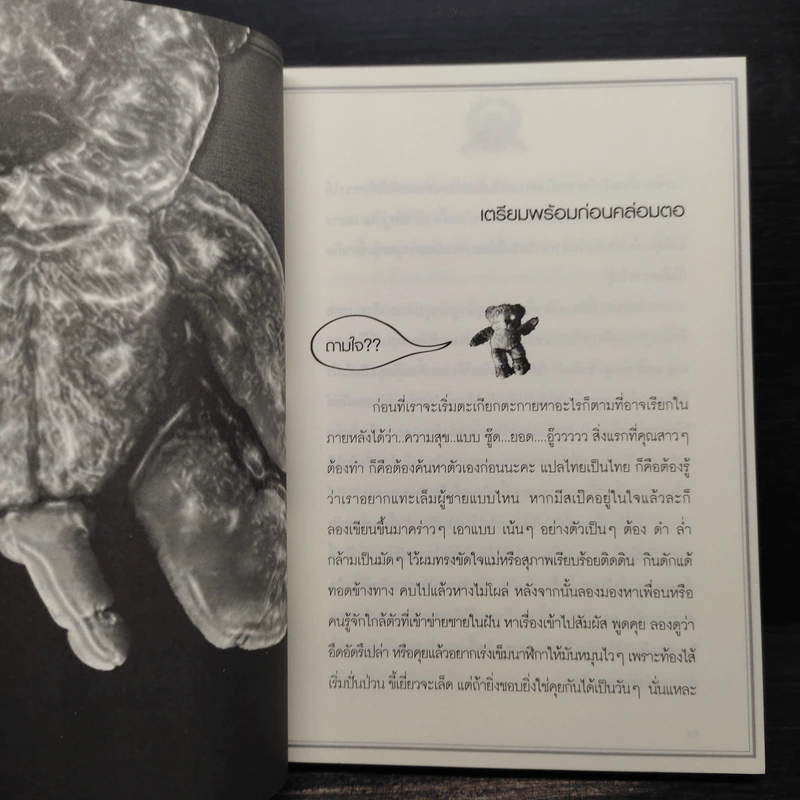 เตรียมพร้อมก่อนคล่อมตอ
ถามใจ??
ก่อนที่เราจะเริ่มตะเกียกตะกายหาอะไรก็ตามที่อาจเรียกใน
ภายหลังได้ว่า..ความสุข..แบบ ซู๊ด...ยอด....อู๊วววว สิ่งแรกที่คุณสาวๆ
ต้องทำ ก็คือต้องค้นหาตัวเองก่อนนะคะ แปลไทยเป็นไทย ก็คือต้องรู้
ว่าเราอยากแทะเล็มผู้ชายแบบไหน หากมีสเป๊คอยู่ในใจแล้วละก็
ลองเขียนขึ้นมาคร่าวๆ เอาแบบ เน้นๆ อย่างตัวเป็นๆ ต้อง ดำ ล่ำ
กล้ามเป็นมัดๆ ไว้ผมทรงขัดใจแม่หรือสุภาพเรียบร้อยติดดิน กินดักแด้
ทอดข้างทาง คบไปแล้วหางไม่โผล่ หลังจากนั้นลองมองหาเพื่อนหรือ
คนรู้จักใกล้ตัวที่เข้าข่ายชายในฝัน หาเรื่องเข้าไปสัมผัส พูดคุย ลองดูว่า
อึดอัดรึเปล่า หรือคุยแล้วอยากเร่งเข็มนาฬิกาให้มันหมุนไวๆ เพราะท้องไส้
เริ่มปั่นป่วน ขี้เยี่ยวจะเล็ด แต่ถ้ายิ่งชอบยิ่งใช่คุยกันได้เป็นวันๆ นั่นแหละ